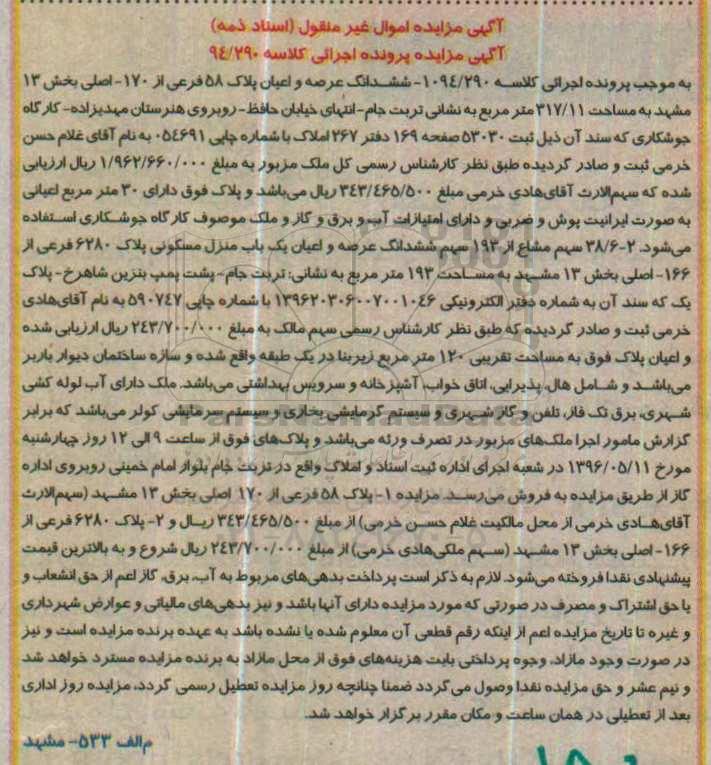 آگهی مزایده اموال غیر منقول (اسناد ذمه)
آگهی مزایده پرونده اجرائی کلاسه ۹۴/۲۹۰
به موجب پرونده اجرائی کلاسه ۱۰۹۴/۲۹۰- ششدانگ عرصه و اعیان پلاک ۵۸ فرعی از ۱۷۰- اصلی بخش ۱۳
مشهد به مساحت ۳۱۷/۱۱ متر مربع به نشانی تربت جام-انتهای خیابان حافظ- روبروی هنرستان مهدیزاده- کارگاه
جوشکاری که سند آن ذیل ثبت ۵۳۰۳۰ صفحه ۱۶۹ دفتر ۲۶۷ املاک با شماره چاپی ۰۵۴۶۹۱ به نام آقای غلام حسن
خرمی ثبت و صادر گردیده طبق نظر کارشناس رسمی کل ملک مزبور به مبلغ ۱/۹۶۲/۶۶۰/۰۰۰ ریال ارزیابی
شده که سهم‌الارث آقای‌هادی خرمی مبلغ ۳۴۳/۴۶۵/۵۰۰ ریال می‌باشد و پلاک فوق دارای ۳۰ متر مربع اعیانی
به صورت ایرانیت پوش و ضربی و دارای امتیازات آب و برق و گاز و ملک موصوف کارگاه جوشکاری استفاده
می‌شود. ۲-۳۸/۶ سهم مشاع از ۱۹۳ سهم ششدانگ عرصه و اعیان یک باب منزل مسکونی پلاک ۶۲۸۰ فرعی از
۱۶۶- اصلی بخش ۱۳ مشهد به مساحت ۱۹۳ متر مربع به نشانی: تربت جام- پشت پمپ بنزین شاهرخ- پلاک
یک که سند آن به شماره دفتر الکترونیکی ۱۳۹۶۲۰۳۰۶۰۰۷۰۰۱۰۴۶ با شماره چاپی ۵۹۰۷۴۷ به نام آقای‌هادی
خرمی ثبت و صادر گردیده که طبق نظر کارشناس رسمی سهم مالک به مبلغ ۲۴۳/۷۰۰/۰۰۰ ریال ارزیابی شده
و اعیان پلاک فوق به مساحت تقریبی ۱۲۰ متر مربع زیربنا در یک طبقه واقع شده و سازه ساختمان دیوار باربر
می‌باشد و شامل هال، پذیرایی، اتاق خواب، آشپزخانه و سرویس بهداشتی می‌باشد. ملک دارای آب لوله کشی
شهری، برق تک فاز، تلفن و گاز شهری و سیستم گرمایشی بخاری و سیستم سرمایشی کولر می‌باشد که برابر
گزارش مامور اجرا ملک‌های مزبور در تصرف ورثه می‌باشد و پلاک‌های فوق از ساعت ۹ الی ۱۲ روز چهارشنبه
مورخ ۱۳۹۶/۰۵/۱۱ در شعبه اجرای اداره ثبت اسناد و املاک واقع در تربت جام بلوار امام خمینی روبروی اداره
گاز از طریق مزایده به فروش می‌رسد. مزایده ۱- پلاک ۵۸ فرعی از ۱۷۰ اصلی بخش ۱۳ مشهد (سهم‌الارث
آقای‌هادی خرمی از محل مالکیت غلام حسن خرمی) از مبلغ ۳۴۳/۴۶۵/۵۰۰ ریال و ۲- پلاک ۶۲۸۰ فرعی از
۱۶۶- اصلی بخش ۱۳ مشهد (سهم ملکی‌هادی خرمی) از مبلغ ۲۴۳/۷۰۰/۰۰۰ ریال شروع و به بالاترین قیمت
پیشنهادی نقدا فروخته می‌شود. لازم به ذکر است پرداخت بدهی‌های مربوط به آب، برق، گاز اعم از حق انشعاب و
یا حق اشتراک و مصرف در صورتی که مورد مزایده دارای آنها باشد و نیز بدهی‌های مالیاتی و عوارض شهرداری
و غیره تا تاریخ مزایده اعم از اینکه رقم قطعی آن معلوم شده یا نشده باشد به عهده برنده مزایده است و نیز
در صورت وجود مازاد، وجوه پرداختی بابت هزینه‌های فوق از محل مازاد به برنده مزایده مسترد خواهد شد
و نیم عشر و حق مزایده نقدا وصول می‌گردد ضمنا چنانچه روز مزایده تعطیل رسمی گردد، مزایده روز اداری
بعد از تعطیلی در همان ساعت و مکان مقرر برگزار خواهد شد.
م‌الف ۵۳۳- مشهد